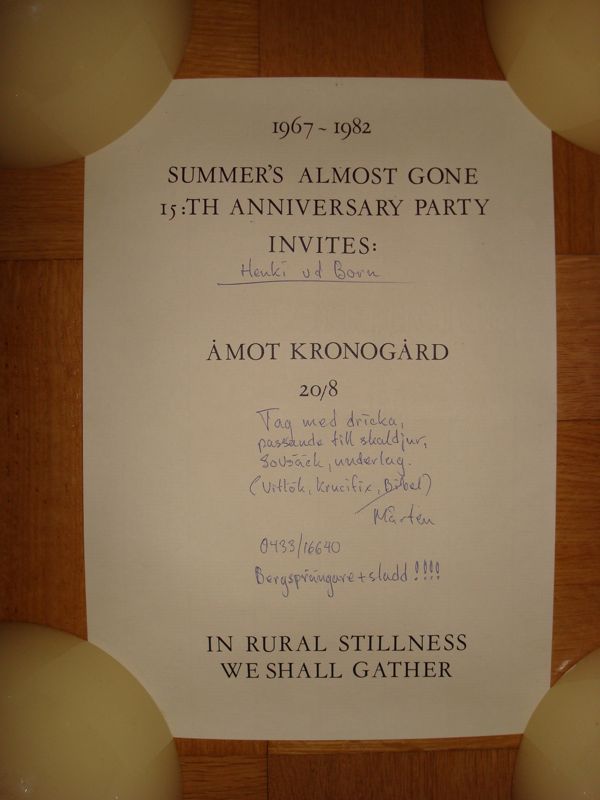 1967 ~ 1982
SUMMER'S ALMOST GONE
15:TH ANNIVERSARY PARTY
INVITES:
Henki vd Born
ÅMOT KRONOGÅRD
20/8
Tag med dricka,
passande till skaldjur,
Sovsäck, underlag.
(Vitlök, krucifix, Bibel)
Mårten
0433/16640
Bergsprängare + sladd !!!!
IN RURAL STILLNESS
WE SHALL GATHER